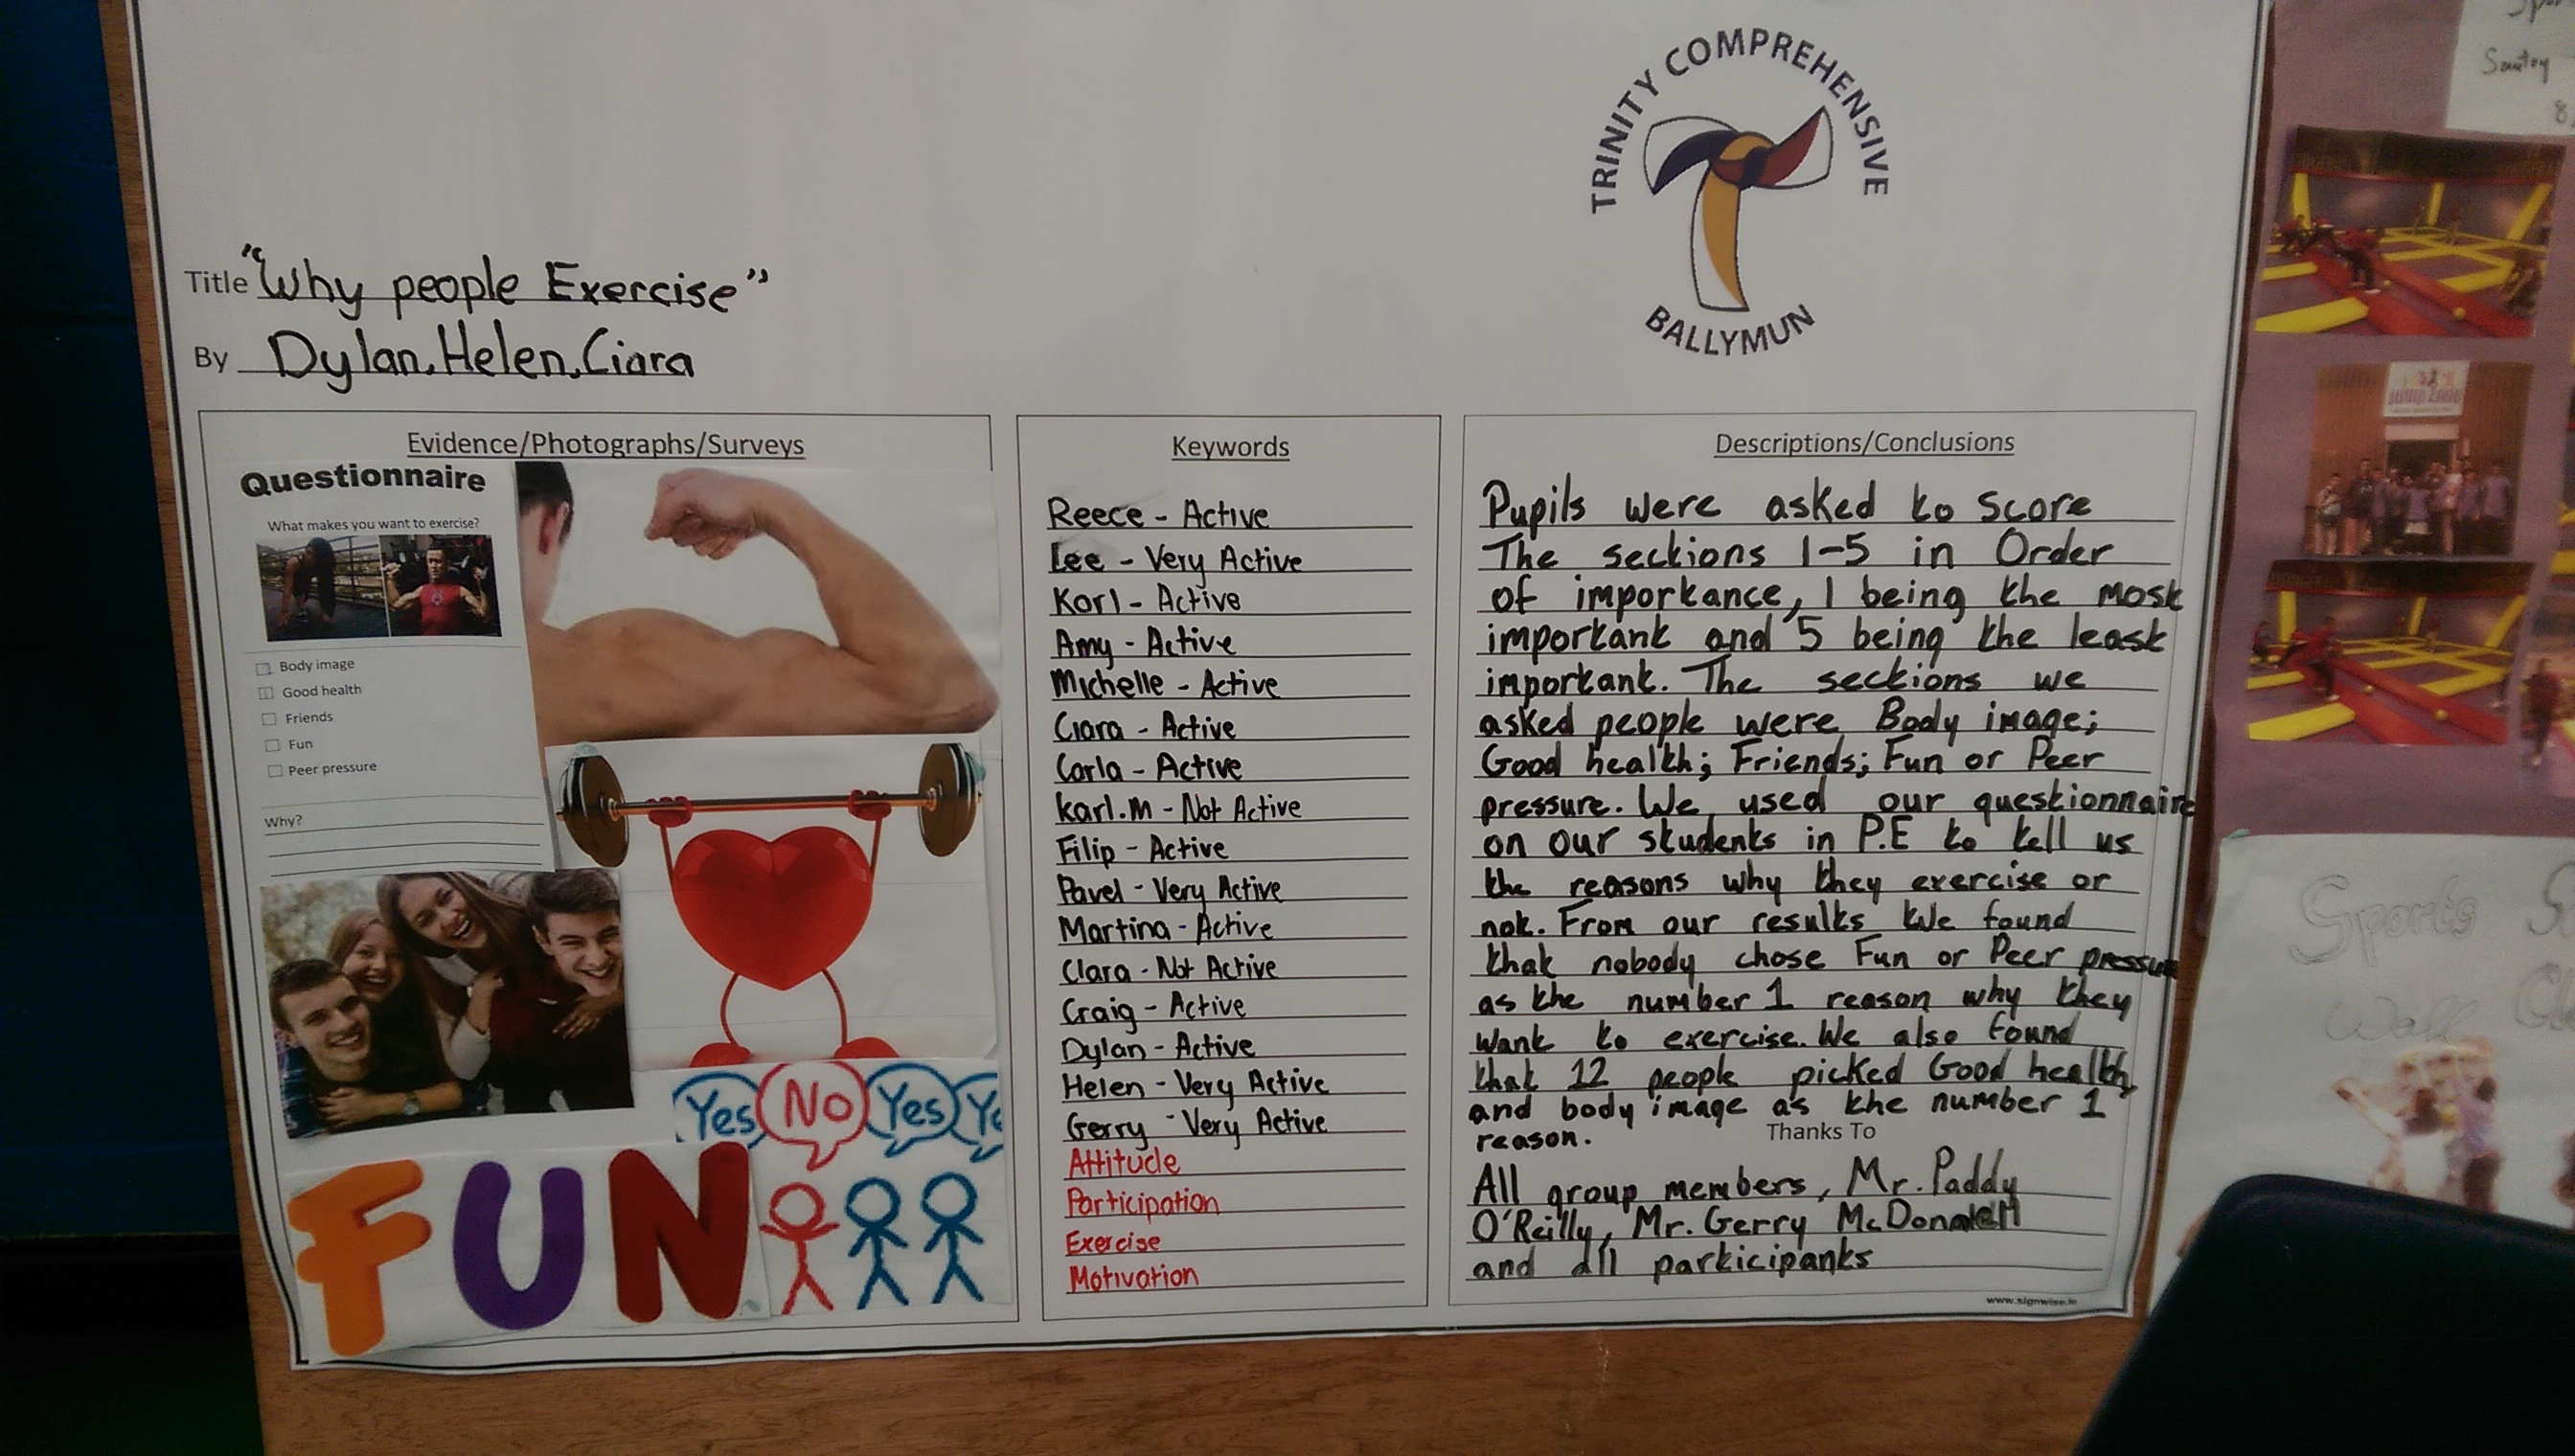 TRINITY COMPREHENSIVE
BALLYMUN
Title "Why people Exercise"
By Dylan, Helen, Ciara
Evidence/Photographs/Surveys
Questionnaire
What makes you want to exercise?
Body image
Good health
Friends
Fun
Peer pressure
Why?
Yes No Yes
FUN
Keywords
Reece - Active
Lee - Very Active
Karl - Active
Amy - Active
Michelle - Active
Ciara - Active
Carla - Active
Karl.M - Not Active
Filip - Active
Pavel - Very Active
Martina - Active
Clara - Not Active
Craig - Active
Dylan - Active
Helen - Very Active
Gerry - Very Active
Attitude
Participation
Exercise
Motivation
Descriptions/Conclusions
Pupils were asked to score
The sections 1-5 in Order
of importance, 1 being the most
important and 5 being the least
important. The sections we
asked people were Body image;
Good health; Friends; Fun or Peer
pressure. We used our questionnaire
on our students in P.E to tell us
the reasons why they exercise or
not. From our results We found
that nobody chose Fun or Peer pressure
as the number 1 reason why they
want to exercise. We also found
that 12 people picked Good health
and body image as the number 1
reason.
Thanks To
All group members, Mr. Paddy
O'Reilly, Mr. Gerry McDonnell
and all participants
www.signwise.ie
Santry
Jump Zone
Sports
Wall